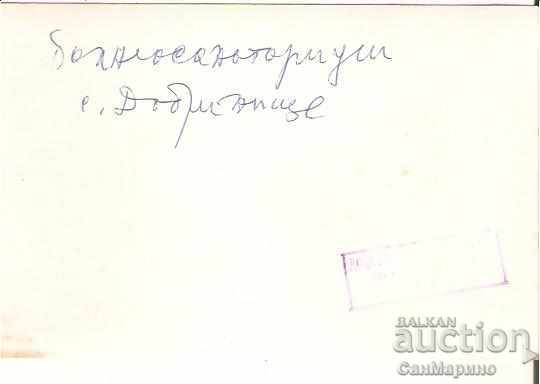 балнеосанаториум
с. Добринище
BALKAN
auction
СанМарино